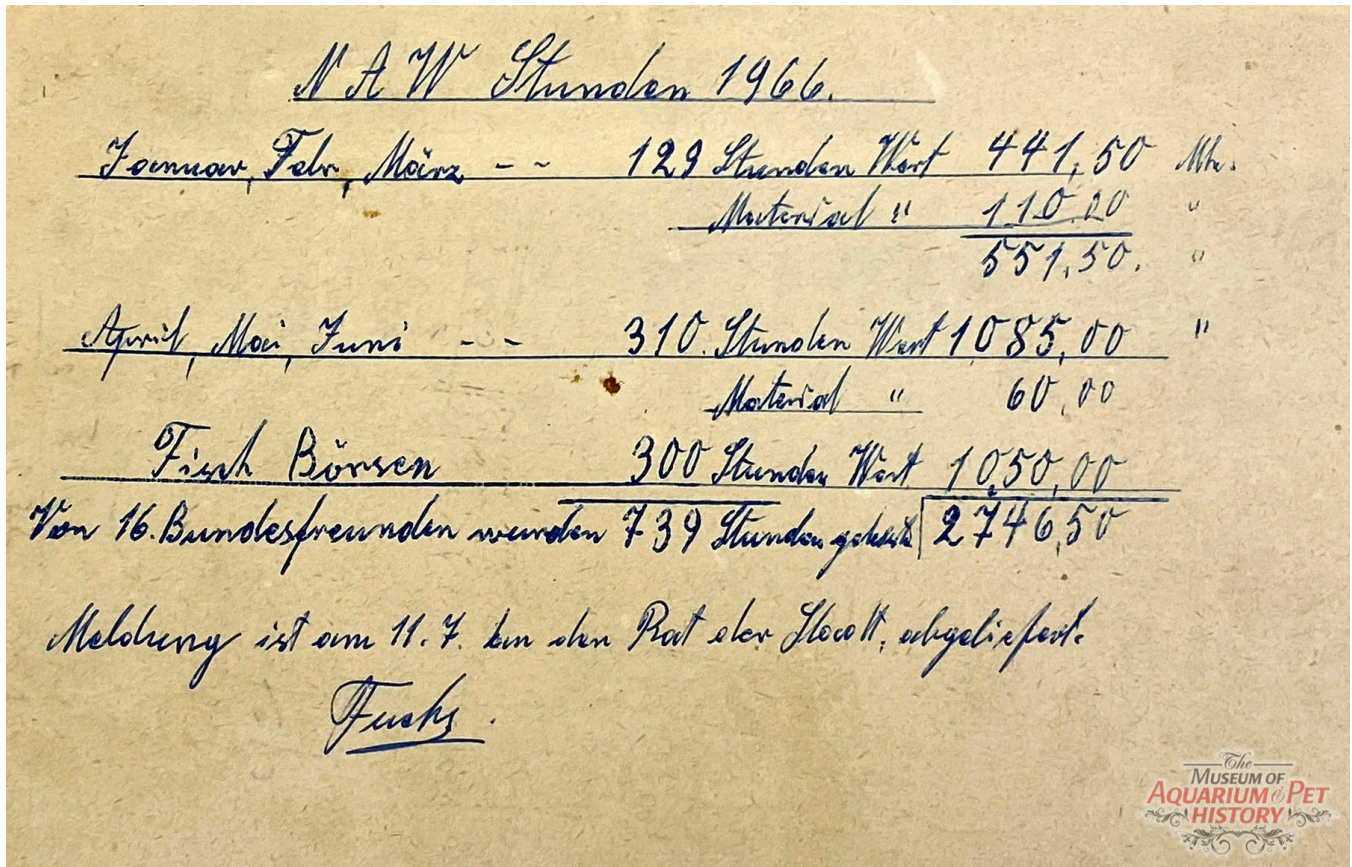 N A W Stunden 1966.
Januar, Febr, März - - 129 Stunden Wert 441,50 Mk.
Material " 110.00 "
551,50. "
April, Mai, Juni - - 310. Stunden Wert 1085,00 "
Material " 60,00
Fisch Börsen 300 Stunden Wert 1050,00
Von 16. Bundesfreunden wurden 739 Stunden 2746,50
Meldung ist am 11.7. an den Rat der Stadt, abgeliefert.
Fuchs.
The
MUSEUM OF
AQUARIUM & PET
HISTORY